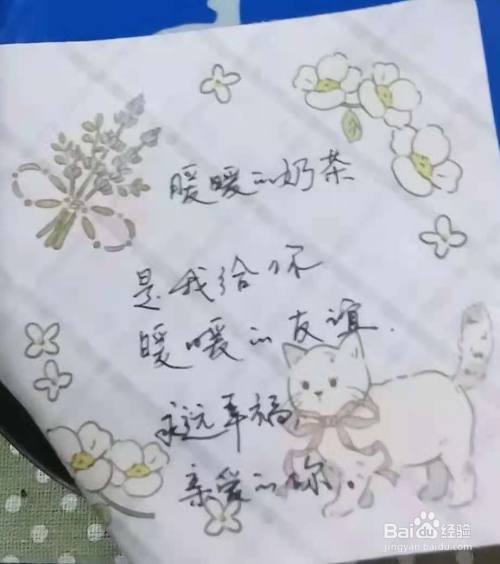 暖暖的奶茶
是我给你
暖暖的友谊.
永远幸福,
亲爱的你.
Baidu 经验
jingyan.baidu.com